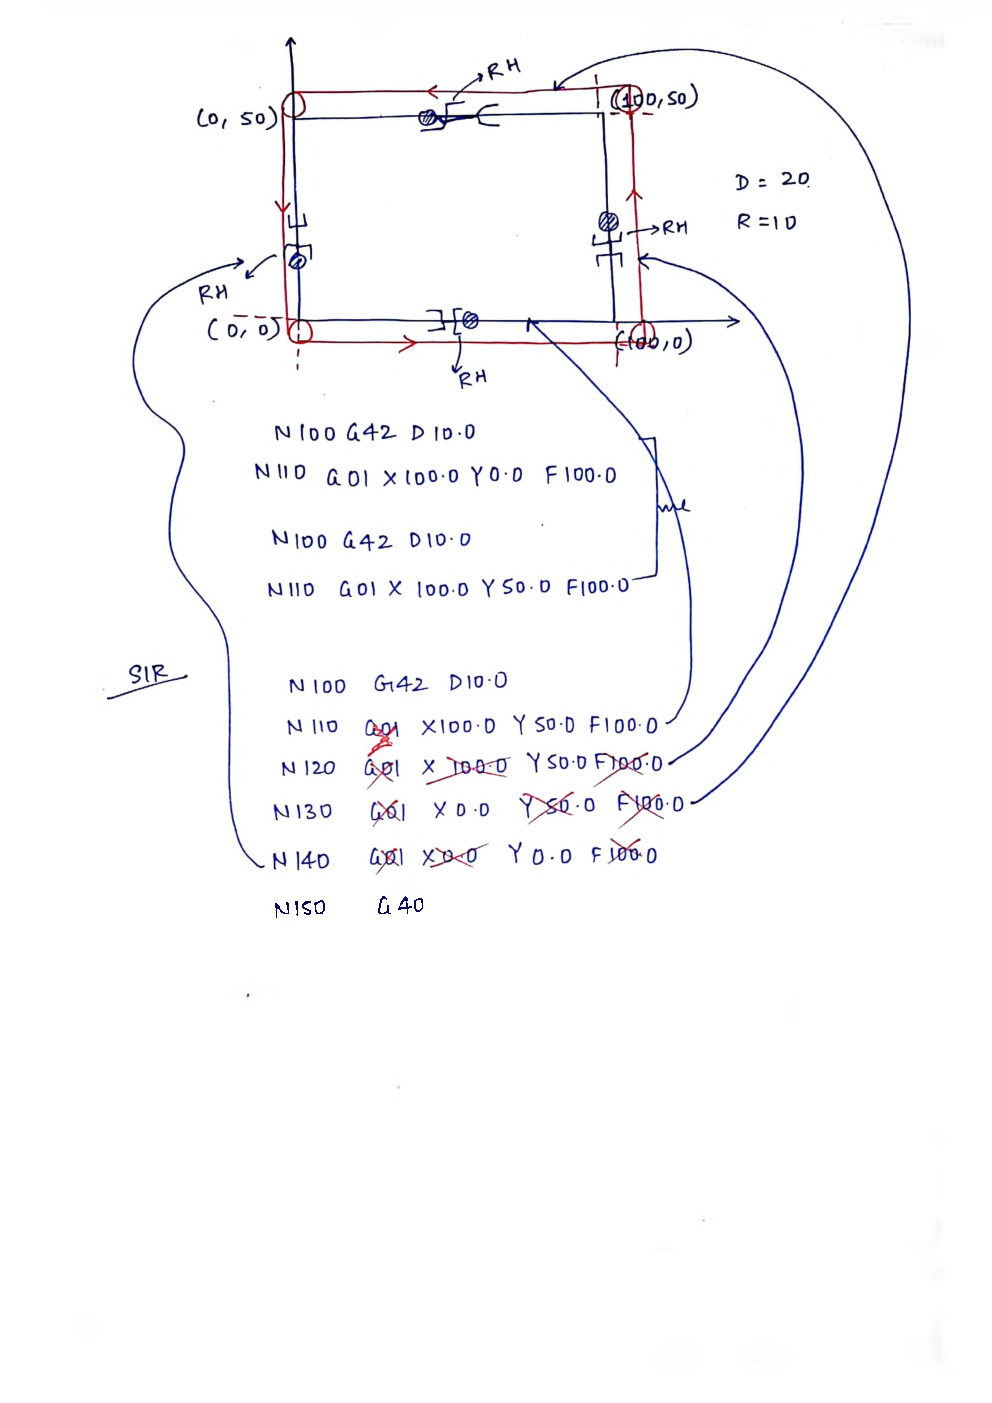 RH
(0, 50)
(100,50)
D = 20
R = 10
RH
RH
(0, 0)
(100,0)
RH
N100 G42 D10.0
N110 G01 X100.0 Y0.0 F100.0
me
N100 G42 D10.0
N110 G01 X 100.0 Y50.0 F100.0
SIR
N100 G42 D10.0
N110 G01 X100.0 Y50.0 F100.0
N120 G01 X 100.0 Y50.0 F100.0
N130 G01 X0.0 Y50.0 F100.0
N140 G01 X0.0 Y0.0 F100.0
N150 G40